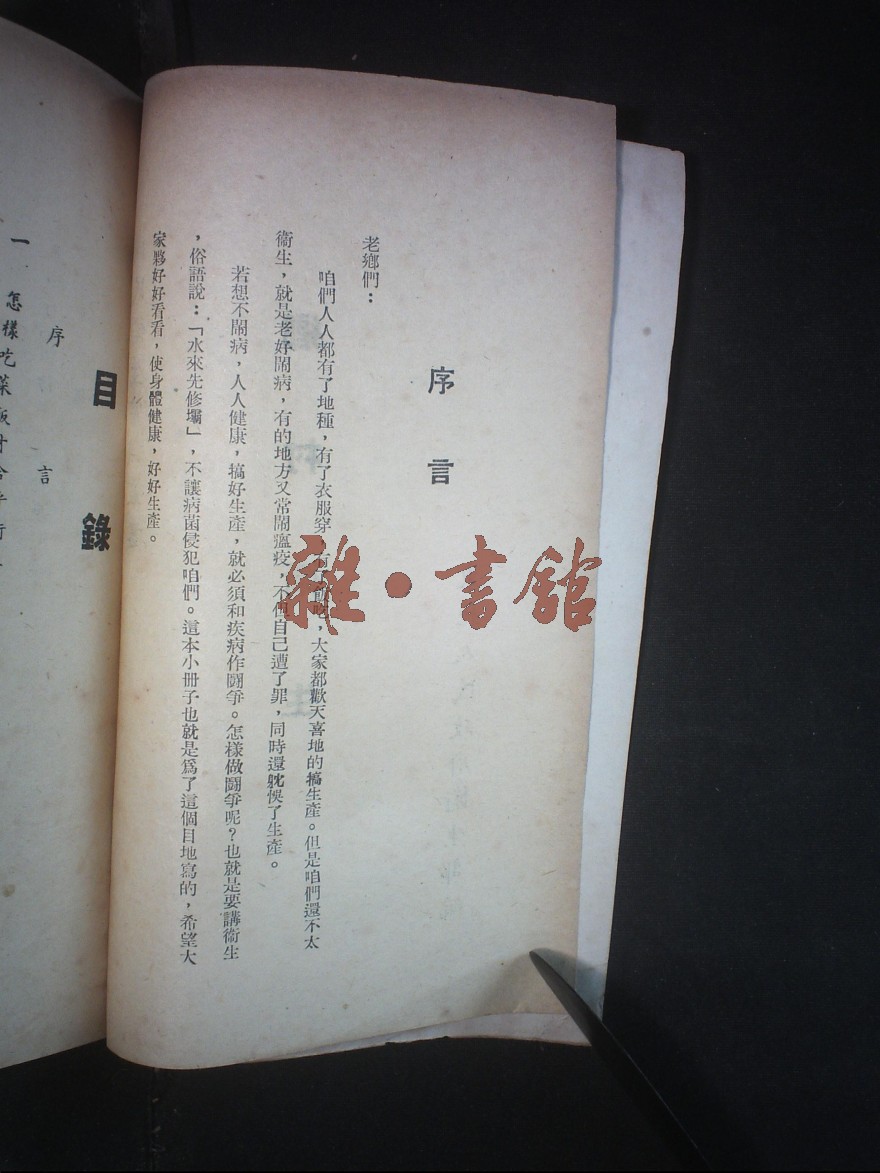 序言
老鄉們：
咱們人人都有了地種，有了衣服穿，有了飯吃，大家都歡天喜地的搞生產。但是咱們還不太
衞生，就是老好鬧病，有的地方又常鬧瘟疫，不但自己遭了罪，同時還躭悞了生產。
若想不鬧病，人人健康，搞好生產，就必須和疾病作鬪爭。怎樣做鬪爭呢？也就是要講衞生
，俗語說：「水來先修壩」，不讓病菌侵犯咱們。這本小冊子也就是爲了這個目地寫的，希望大
家夥好好看看，使身體健康，好好生產。
目錄
序言
一 怎樣吃菜飯才合乎衞
雜·書館